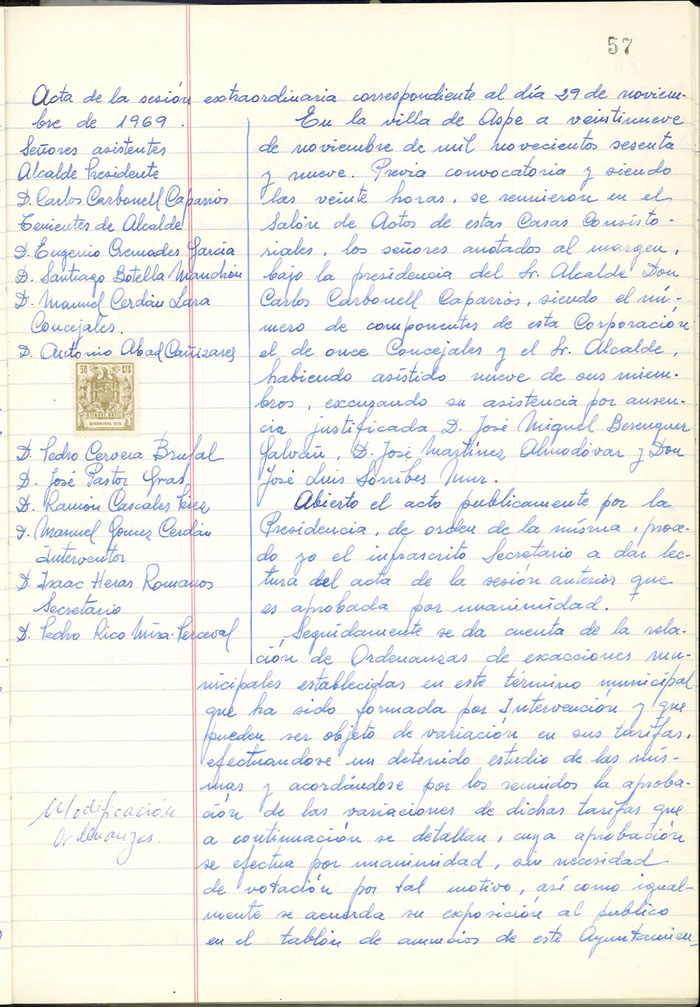 57
Acta de la sesión extraordinaria correspondiente al día 29 de noviem-
bre de 1969.
Señores asistentes
Alcalde Presidente
D. Carlos Carbonell Caparros
Tenientes de Alcalde
D. Eugenio Cremades Garcia
D. Santiago Botella Mandrón
D. Manuel Cerdán Lara
Concejales.
D. Antonio Abad Cañizares
50 CTS
D. Pedro Cervera Brufal
D. José Pastor Gras
D. Ramón Cascales Pérez
D. Manuel Gomez Cerdán
Interventor
D. Isaac Heras Romanos
Secretario
D. Pedro Rico Mira-Perceval
En la villa de Aspe a veintinueve
de noviembre de mil novecientos sesenta
y nueve. Previa convocatoria y siendo
las veinte horas, se reunieron en el
Salón de Actos de estas Casas Consisto-
riales, los señores anotados al margen,
bajo la presidencia del Sr. Alcalde Don
Carlos Carbonell Caparros, siendo el nú-
mero de componentes de esta Corporación
el de once Concejales y el Sr. Alcalde,
habiendo asistido nueve de sus miem-
bros, excusando su asistencia por ausen-
cia justificada D. José Miguel Berenguer
Galvañ, D. José Martínez Almodóvar y Don
José Luis Sorribes Mur.
Abierto el acto publicamente por la
Presidencia, de orden de la misma, proce-
do yo el infrascrito Secretario a dar lec-
tura del acta de la sesión anterior que
es aprobada por unanimidad.
Seguidamente se da cuenta de la rela-
ción de Ordenanzas de exacciones mu-
nicipales establecidas en este término municipal
que ha sido formada por Intervención y que
pueden ser objeto de variación en sus tarifas,
efectuandose un detenido estudio de las mis-
mas y acordándose por los reunidos la aproba-
ción de las variaciones de dichas tarifas que
a continuación se detallan, cuya aprobación
se efectua por unanimidad, sin necesidad
de votación por tal motivo, así como igual-
mente se acuerda su exposición al publico
en el tablón de anuncios de este Ayuntamien-
Modificación
Ordenanzas.